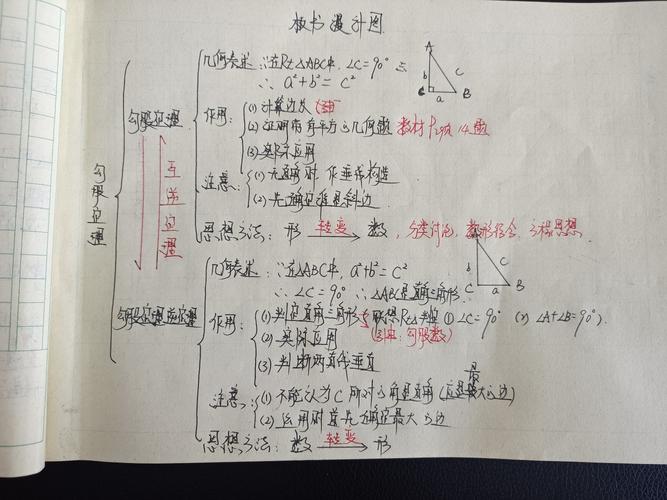 板书设计图
勾股定理
勾股定理
几何表述:∵在Rt△ABC中,∠C=90°
∴ a²+b²=c²
A
b
c
C
a
B
作用:
(1) 计算边长
(2) 证明含有平方的几何题 教材 14题
(3) 实际应用
注意:
(1) 无直角时,作垂线构造
(2) 先确定谁是斜边
思想方法:形 转变 数,分类讨论,数形结合,方程思想
互逆定理
勾股定理逆定理
几何表述:∵在△ABC中,a²+b²=c²
∴∠C=90° ∴△ABC是直角三角形
b
c
C
a
B
作用:
(1) 判定直角三角形 联想Rt△判定 ① ∠C=90° (2) ∠A+∠B=90°).
(2) 实际应用 勾股数)
(3) 判断两直线垂直
注意:
(1) 不能认为C所对的角是直角 (应是最大的边)
(2) 运用时首先确定最大的边
思想方法:数 转变 形